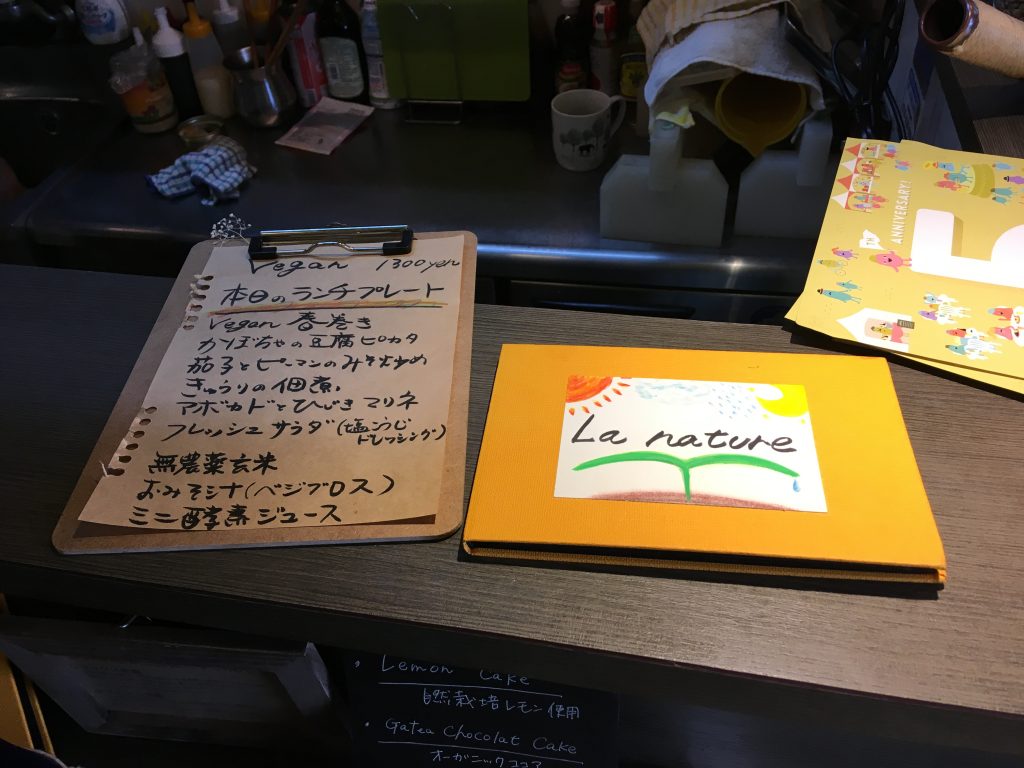 Vegan 1300yen
本日のランチプレート
Vegan 春巻き
かぼちゃの豆腐ピカタ
茄子とピーマンのみそ炒め
きゅうりの佃煮
アボカドとひじきマリネ
フレッシュサラダ(塩こうじ
ドレッシング)
無農薬玄米
おみそシナ(ベジブロス)
ミニ酵素ジュース
La nature
TH
ANNIVERSARY!
・ Lemon Cake
自然栽培レモン使用
・ Gatea Chocolat Cake
オーガニックココア